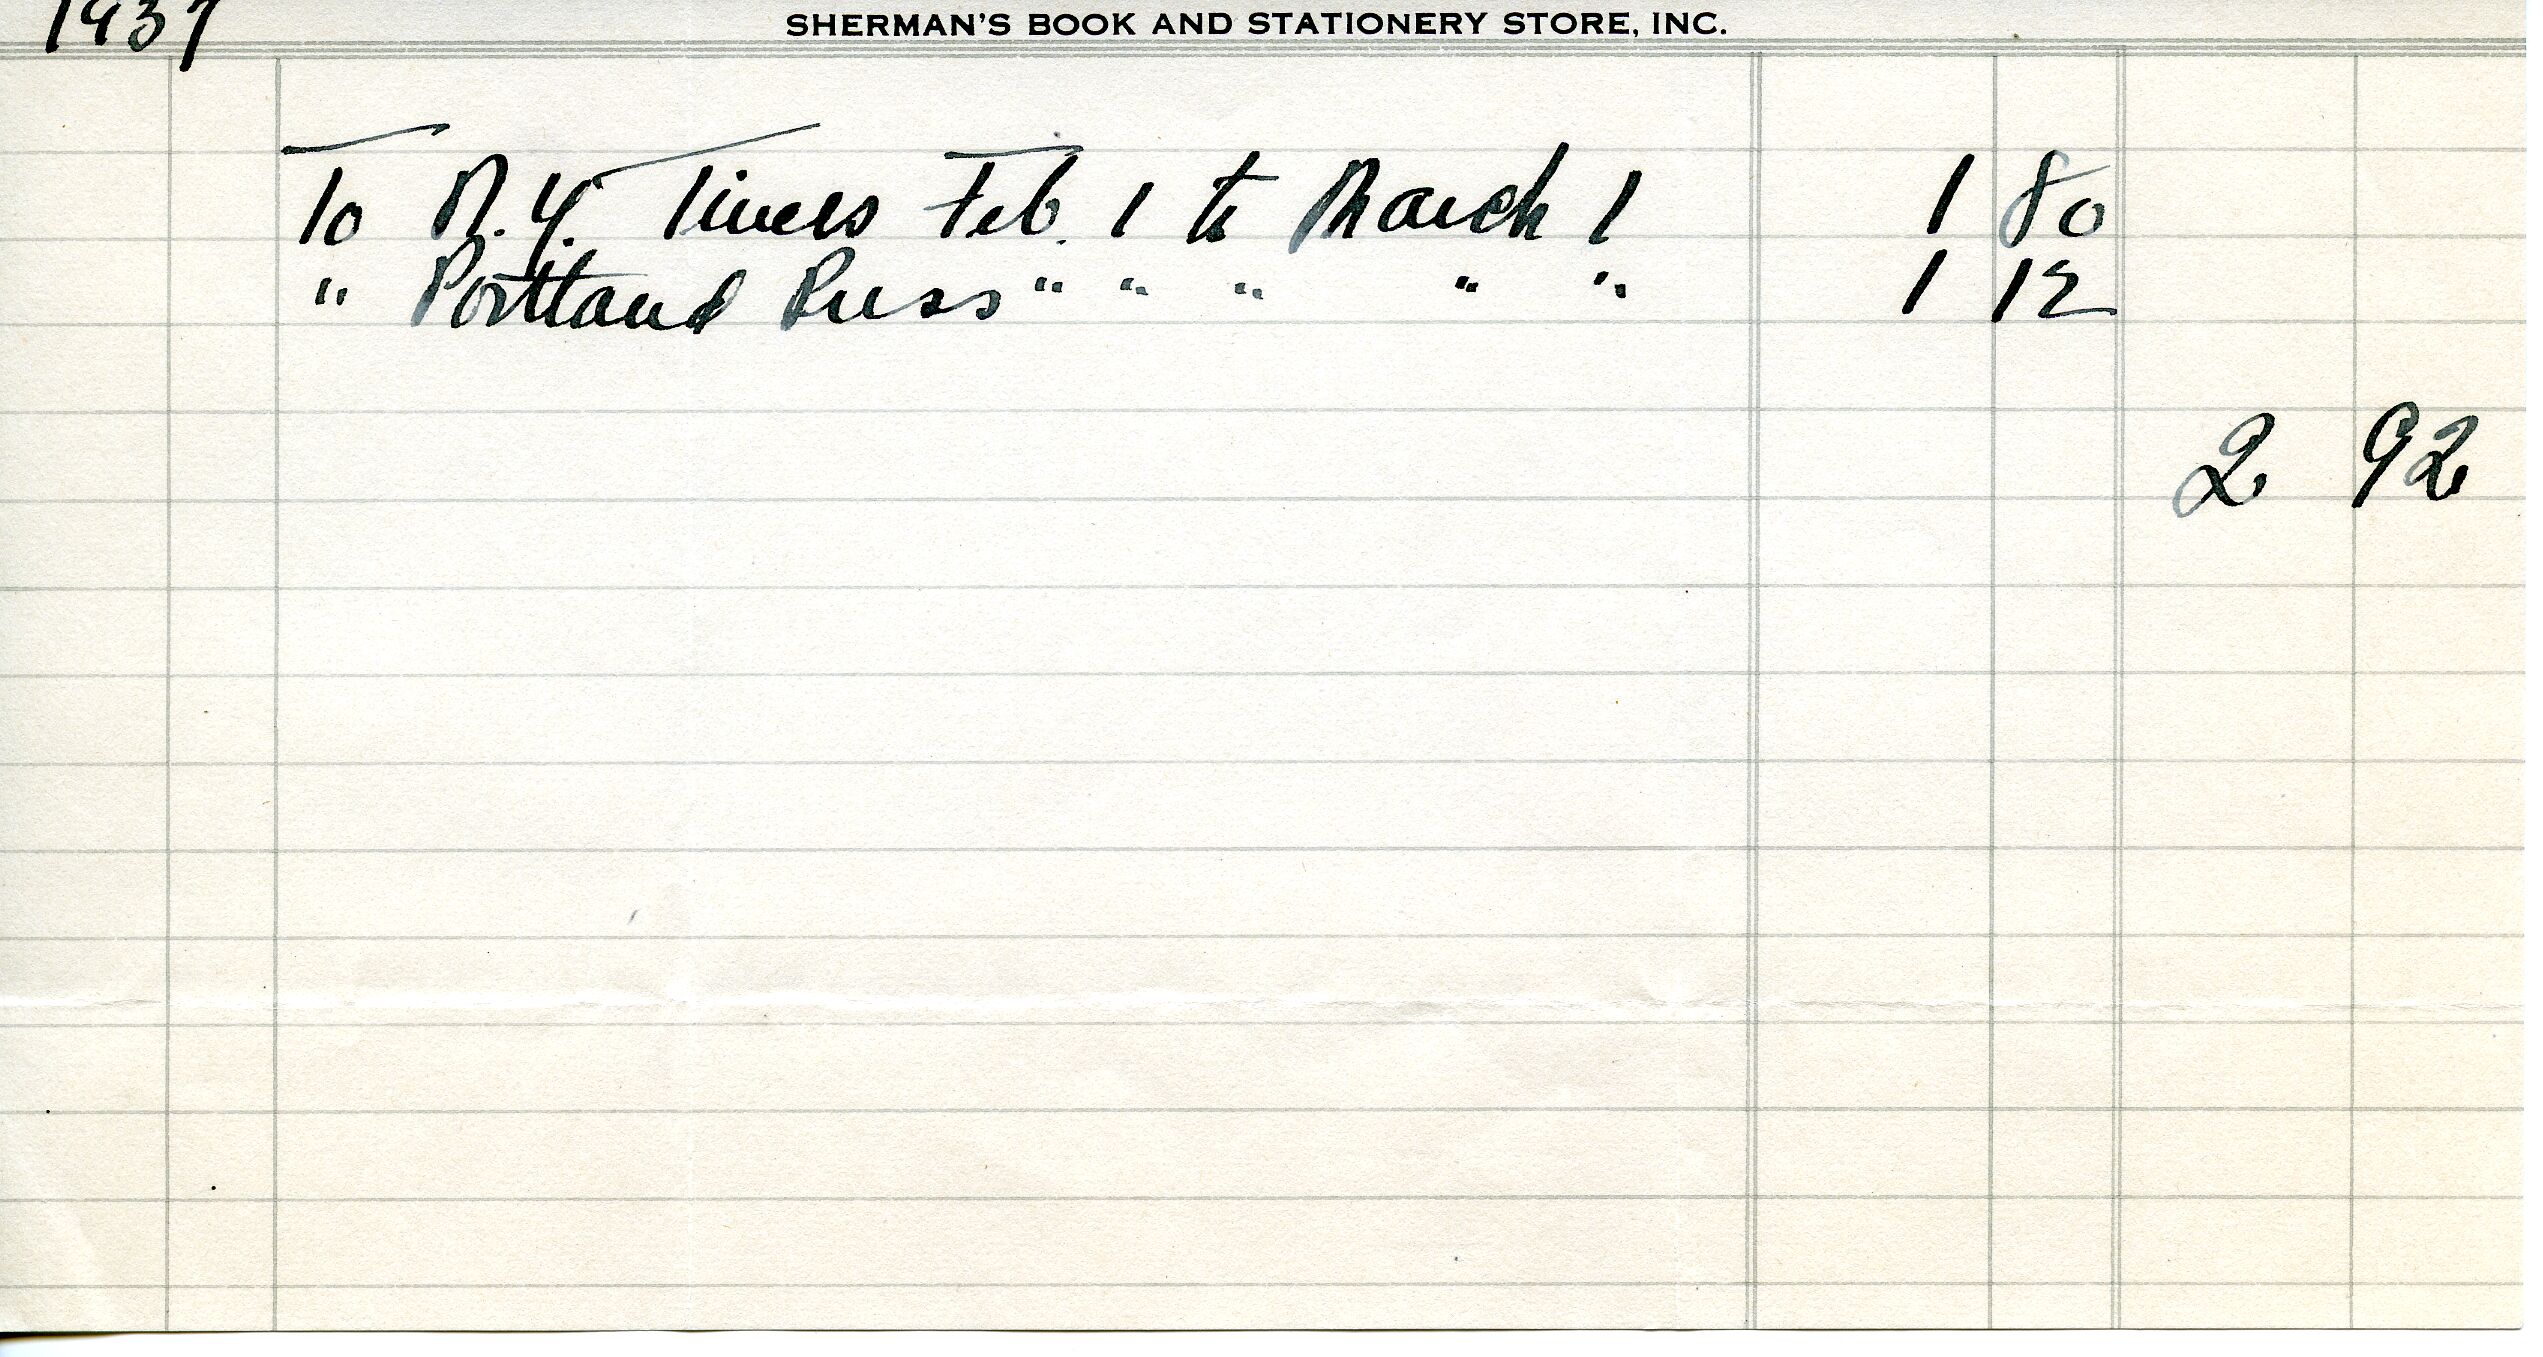 1937
SHERMAN'S BOOK AND STATIONERY STORE, INC.
To N.Y. Times Feb. 1 to March 1 1 80
" Portland Press " " " " " 1 12
2 92